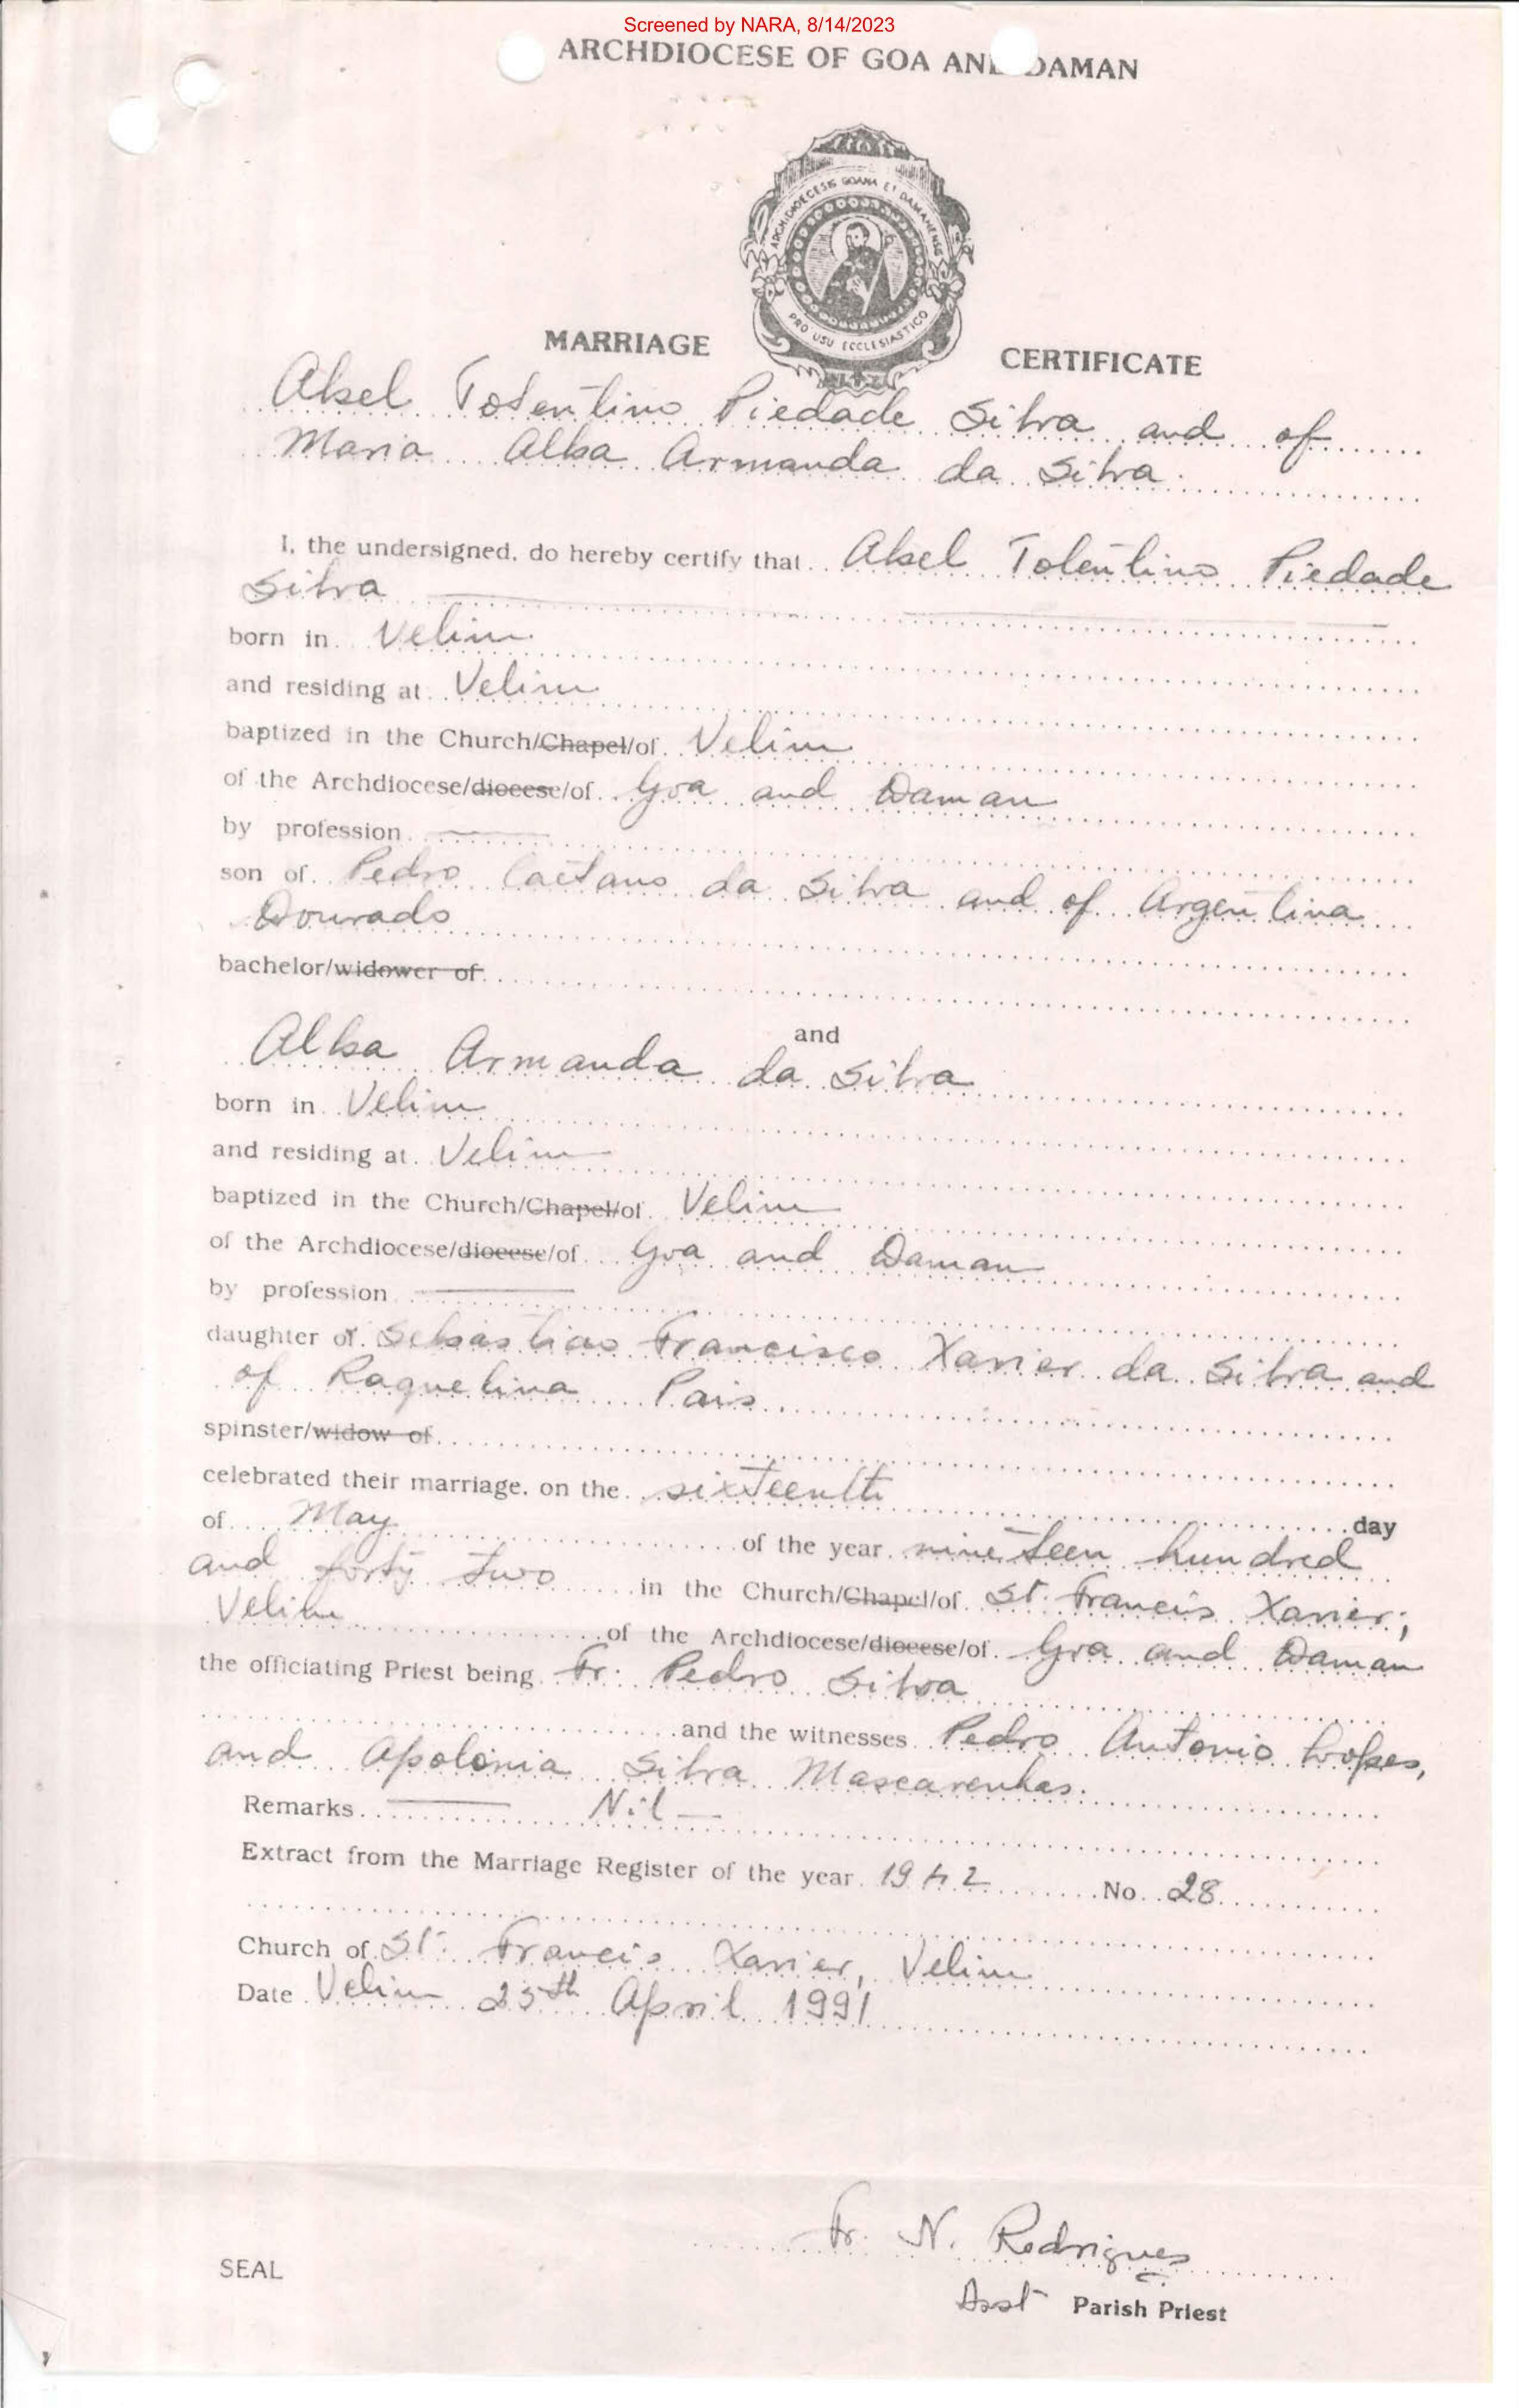 Screened by NARA, 8/14/2023
ARCHDIOCESE OF GOA AND DAMAN
ARCHIDIOECESIS GOANA ET DAMANENSIS
PRO USU ECCLESIASTICO
MARRIAGE CERTIFICATE
Abel Tolentino Piedade Silva and of
Maria Alba Armanda da Silva.
I, the undersigned, do hereby certify that Abel Tolentino Piedade
Silva
born in Velim
and residing at Velim
baptized in the Church/Chapel/of Velim
of the Archdiocese/diocese/of Goa and Daman
by profession
son of Pedro Caetano da Silva and of Argentina
Dourado
bachelor/widower of
and
Alba Armanda da Silva
born in Velim
and residing at Velim
baptized in the Church/Chapel/of Velim
of the Archdiocese/diocese/of Goa and Daman
by profession
daughter of Sebastiao Francisco Xavier da Silva and
of Raquelina Pais
spinster/widow of
celebrated their marriage, on the sixteenth
day
of May of the year nineteen hundred
and forty two in the Church/Chapel/of St. Francis Xavier,
Velim of the Archdiocese/diocese/of Goa and Daman
the officiating Priest being Fr. Pedro Silva
and the witnesses Pedro Antonio Lopes,
and Apolonia Silva Mascarenhas.
Remarks Nil
Extract from the Marriage Register of the year 1942 No. 28
Church of St. Francis Xavier, Velim
Date Velim 25th April 1991
Fr. N. Rodrigues
SEAL
Asst Parish Priest